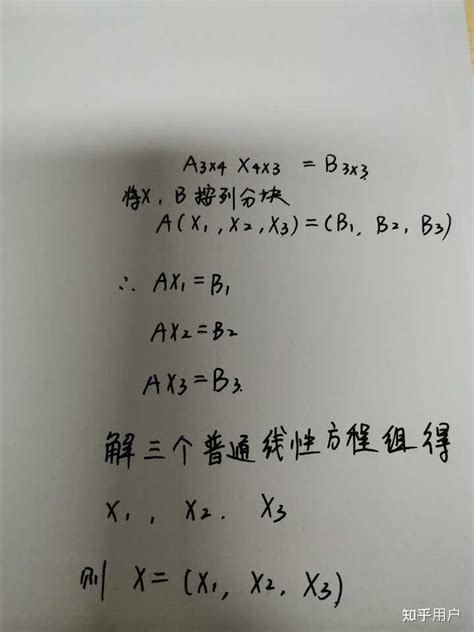 A3×4 X4×3 = B3×3
将X, B按列分块
A(X1, X2, X3) = (B1, B2, B3)
∴ AX1 = B1
AX2 = B2
AX3 = B3
解三个普通线性方程组得
X1, X2. X3
则 X = (X1, X2, X3)
知乎用户